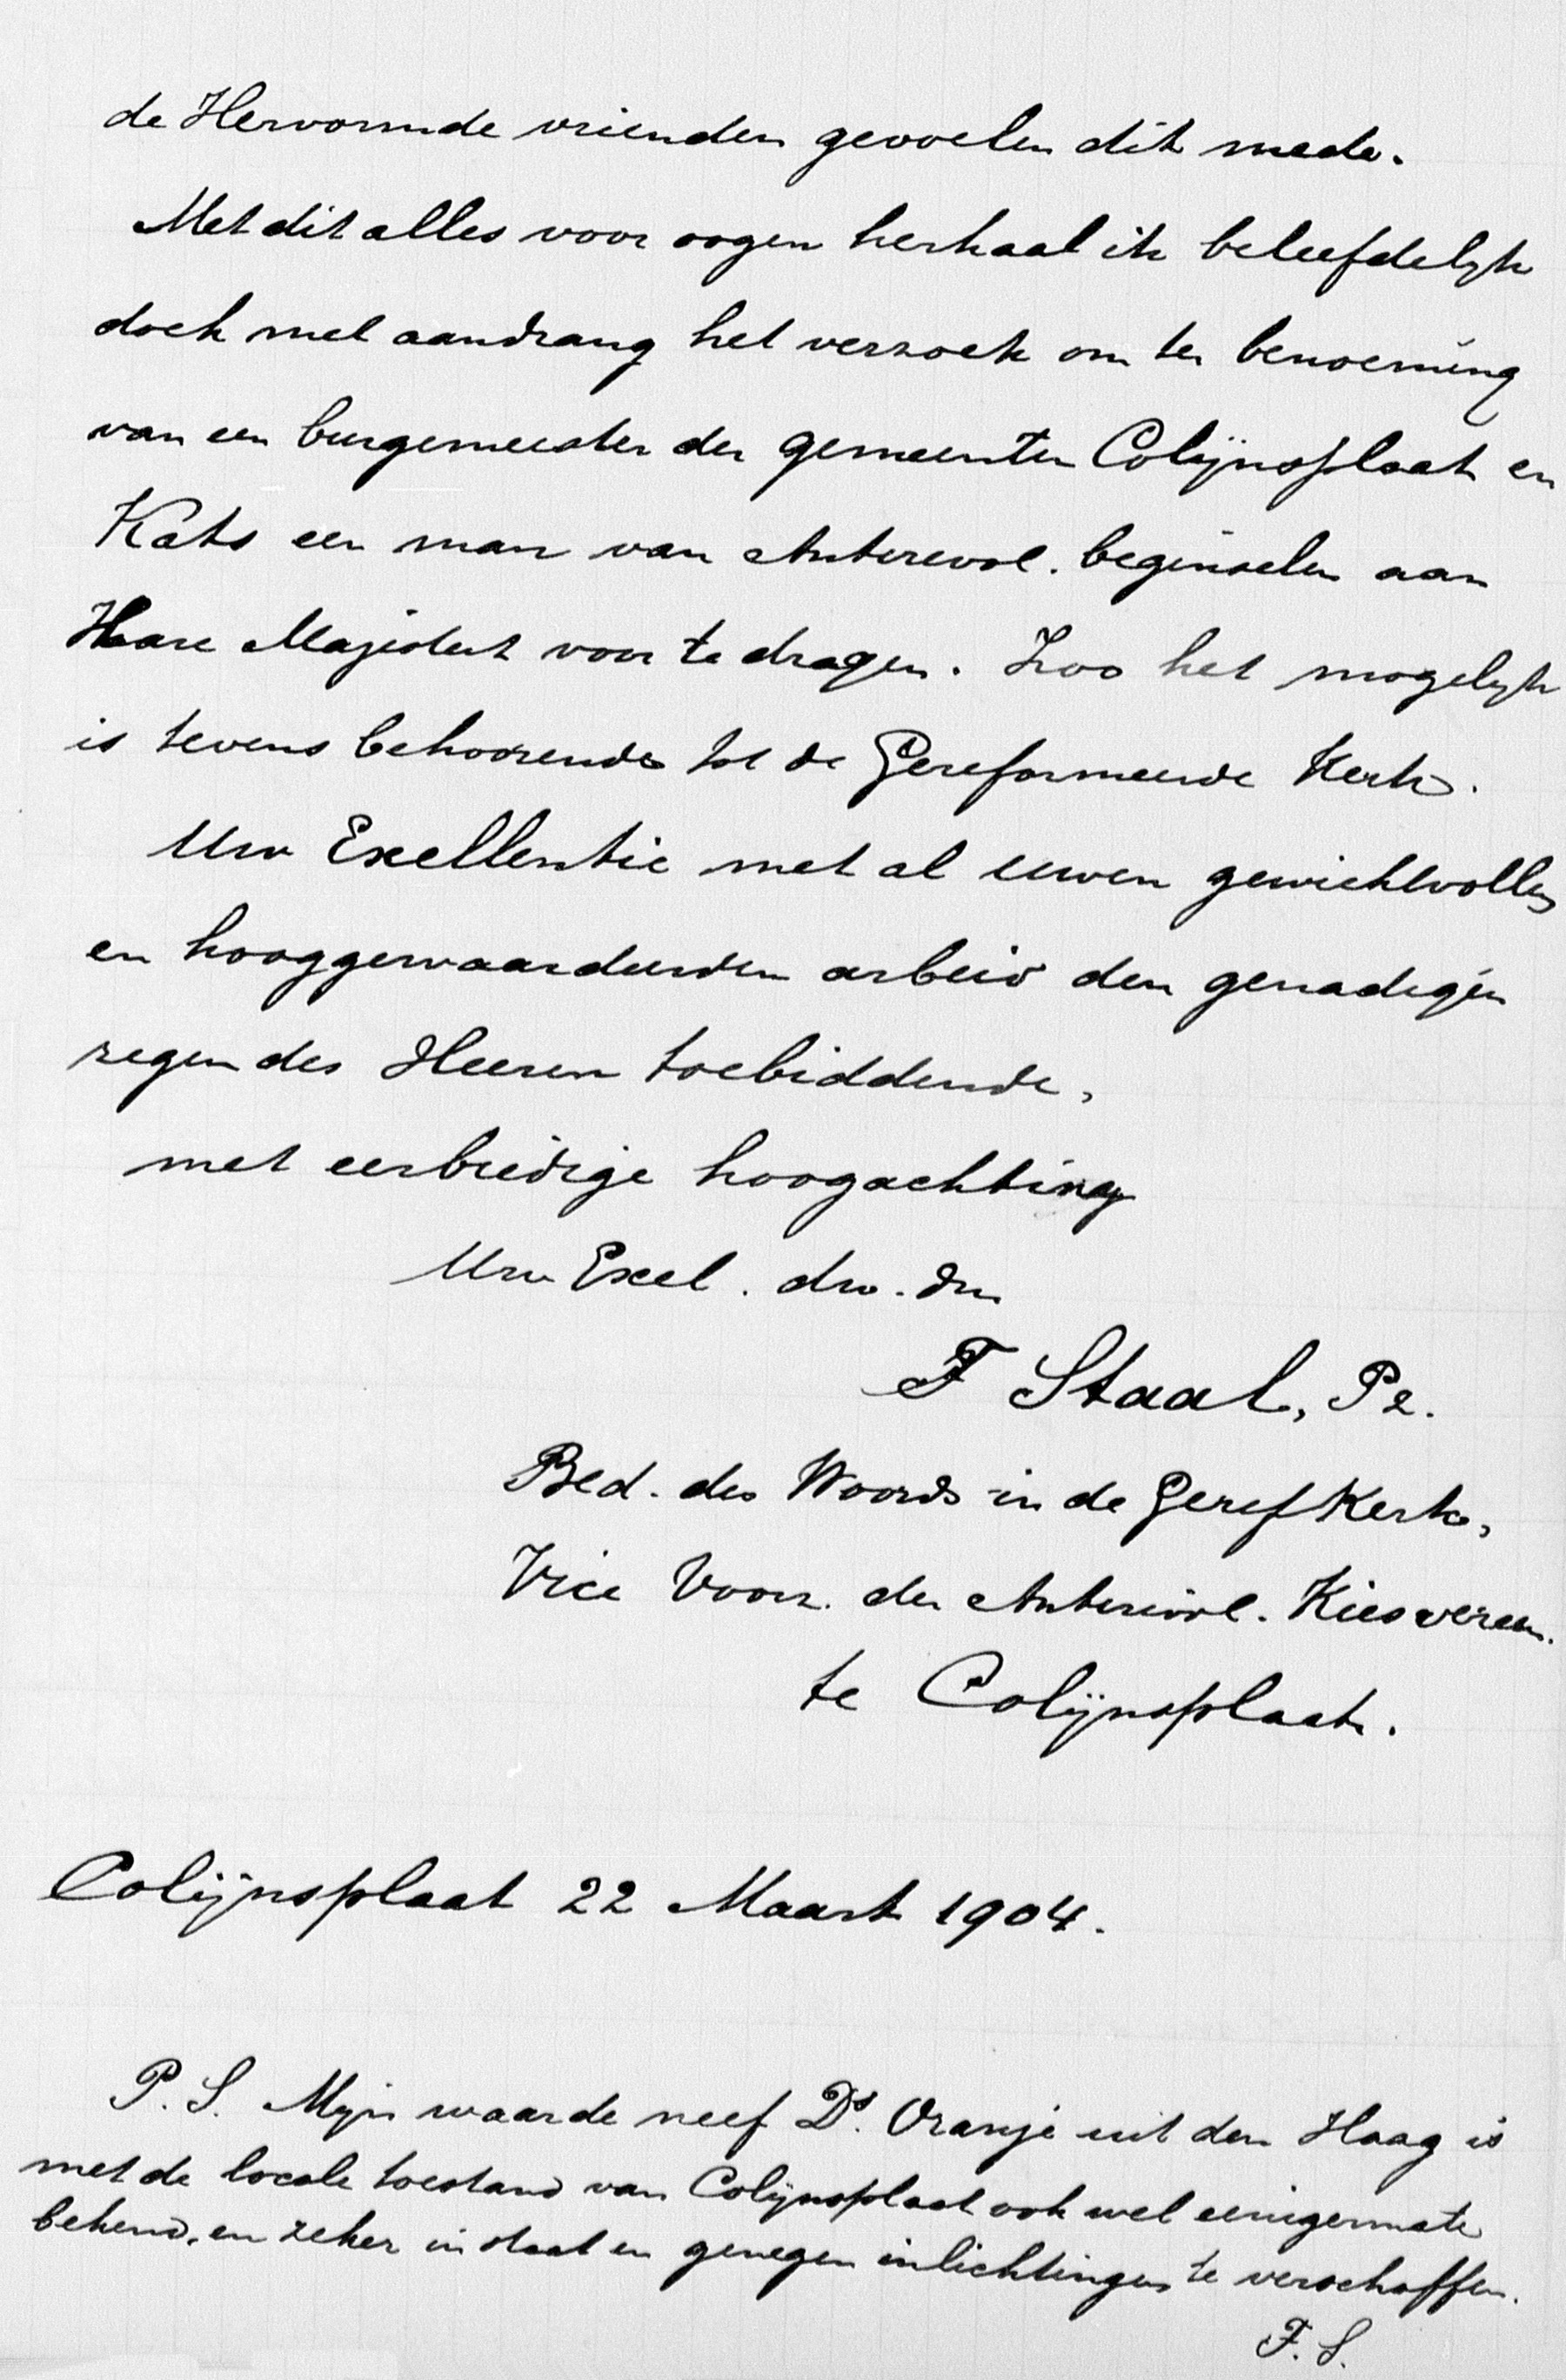 de Hervormde vrienden gevoelen dit mede.
Met dit alles voor oogen herhaal ik beleefdelijk
doch met aandrang het verzoek om ter benoeming
van een burgemeester der gemeenten Colijnsplaat en
Kats een man van Antirevol. beginselen aan
Hare Majesteit voor te dragen. Zoo het mogelijk
is tevens behoorende tot de Gereformeerde Kerk.
Uw Excellentie met al uwen gewichtvollen
en hooggewaardeerden arbeid den genadigen
zegen des Heeren toebiddende,
met eerbiedige hoogachting
Uw Excel. dw. dn
F Staal, Pz.
Bed. des Woords in de Geref Kerk,
Vice Voorz. der Antirevol. Kiesvereen.
te Colijnsplaat.
Colijnsplaat 22 Maart 1904.
P. S. Mijn waarde neef Ds. Oranje uit den Haag is
met de locale toestand van Colijnsplaat ook wel eenigermate
bekend, en zeker in staat en genegen inlichtingen te verschaffen.
F. S.